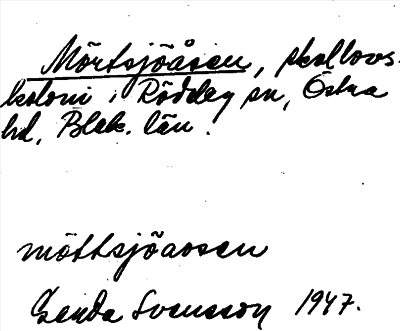 Mörtsjöåsen, skollovs-
koloni i Rödeby sn, Östra
hd, Blek. län.
möttsjöaosen
Gerda Svensson 1947.